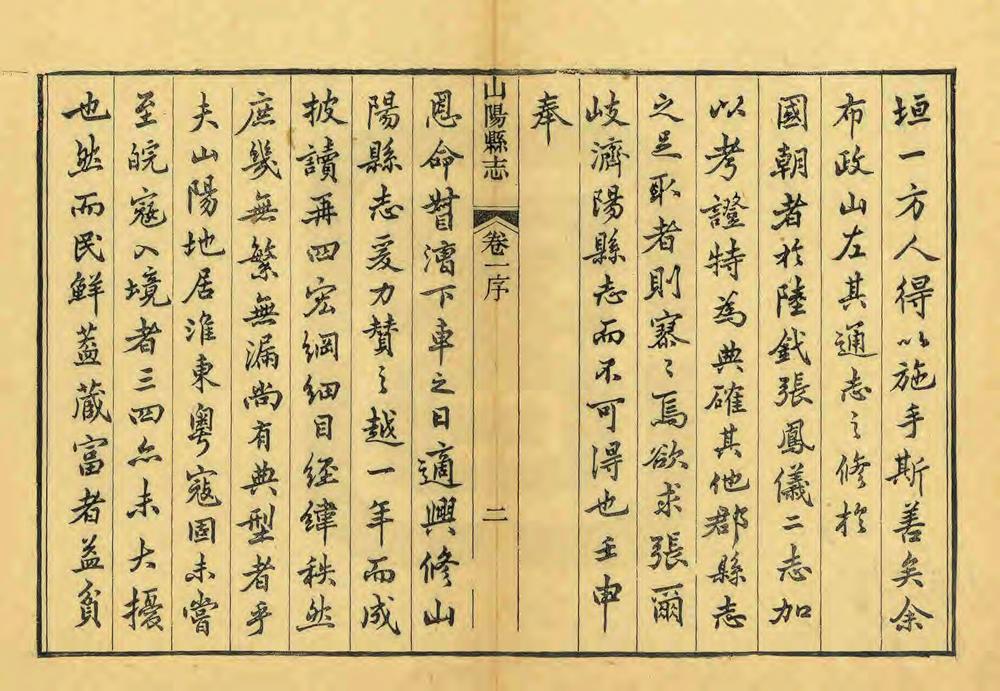 垣一方人得以施手斯善矣余
布政山左其通志之修於
國朝者於陸釴張鳳儀二志加
以考證特為典確其他郡縣志
之足取者則寥〻焉欲求張爾
岐濟陽縣志而不可得也壬申
奉
山陽縣志
卷一序
二
恩命督漕下車之日適興修山
陽縣志爰力贊之越一年而成
披讀再四宏綱細目經緯秩然
庶幾無繁無漏尚有典型者乎
夫山陽地居淮東粵寇固未嘗
至皖寇入境者三四亦未大擾
也然而民鮮蓋藏富者益貧